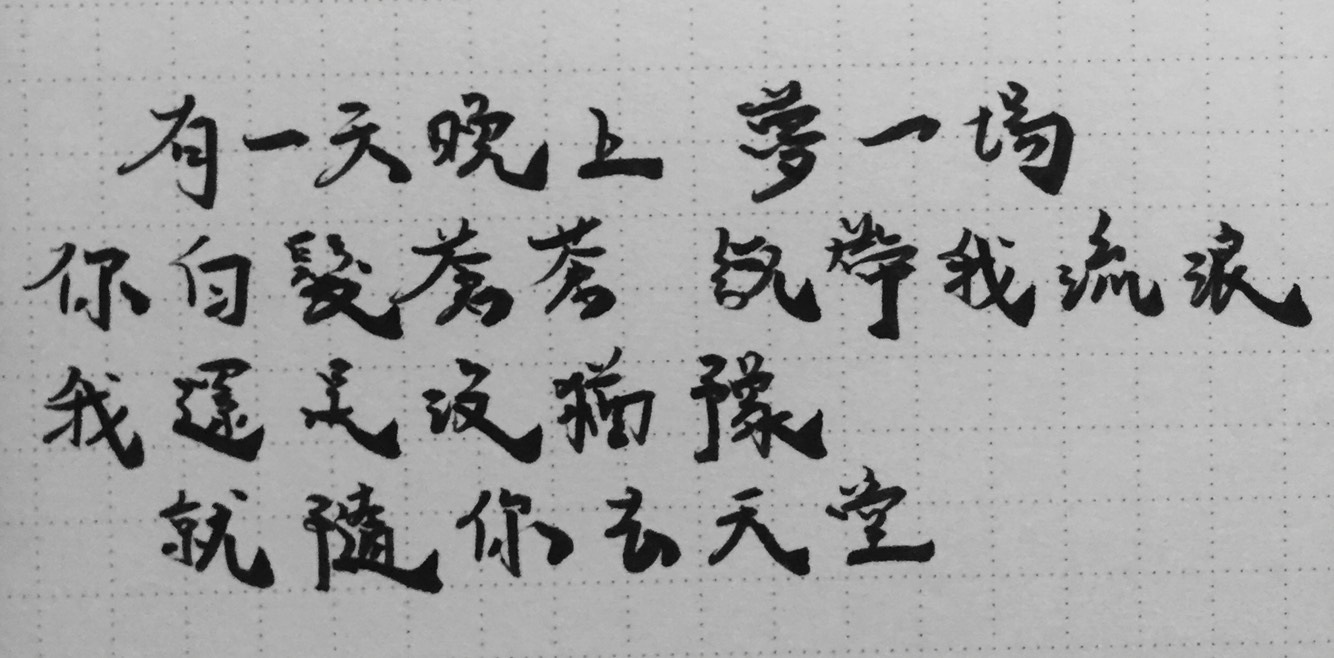 有一天晚上 夢一場
你白髮蒼蒼 說帶我流浪
我還是沒猶豫
就隨你去天堂